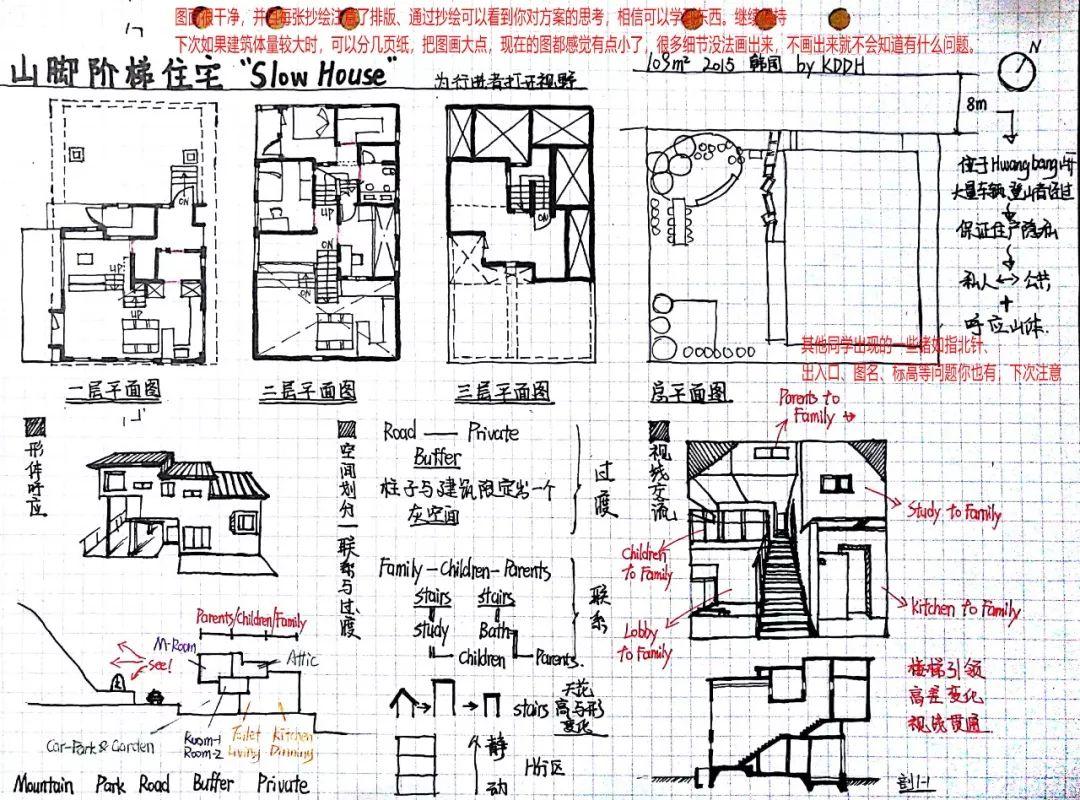 图面很干净，并且每张抄绘注意了排版、通过抄绘可以看到你对方案的思考，相信可以学到东西。继续保持
下次如果建筑体量较大时，可以分几页纸，把图画大点，现在的图都感觉有点小了，很多细节没法画出来，不画出来就不会知道有什么问题。
山脚阶梯住宅 "Slow House"
为行进者打开视野
109m² 2015 韩国 by KDDH
N
8m
位于Hwangbang
大量车辆,登山者经过
保证住户隐私
私人↔公共
+
呼应山体.
UP
UP
DN
一层平面图
UP
DN
DN
二层平面图
DN
三层平面图
房平面图
其他同学出现的一些诸如指北针、
出入口、图名、标高等问题你也有，下次注意
形体呼应
空间划分—联系与过渡
Road — Private
Buffer
柱子与建筑限定出一个
灰空间
过渡
Family-Children-Parents
stairs stairs
study Bath
Children Parents.
联系
stairs
天花
高与形
变化
静
动
H分区
视线交流
Parents to
Family
Study to Family
Children
to Family
Lobby
to Family
Kitchen to Family
Parents/Children/Family
M-Room
Attic
see!
Car-Park & Garden
Room-1
Room-2
Toilet Kitchen
Living Dinning
Mountain Park Road Buffer Private
楼梯引领
高差变化
视线贯通
剖1-1